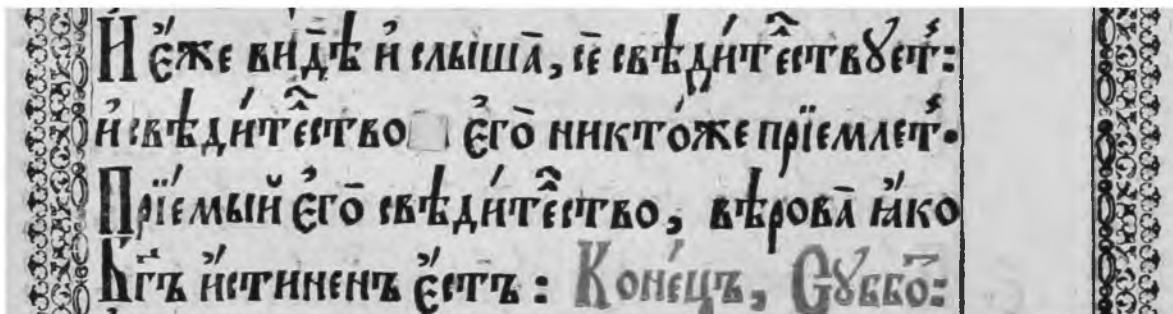 И҆ є҆́же ви́дѣ и҆ слы́ша̄, се̄ свѣди́те̑ствꙋет̾:
и҆ свѣди́те̑ство є҆го̄ никто́же прїе́млет̾.
Прїе́мый є҆го̄ свѣди́те̑ство, вѣ́рова̄ ꙗ҆́ко
Бг҃ъ и҆́стиненъ є҆́стъ: Коне́цъ, Сꙋббо̄: